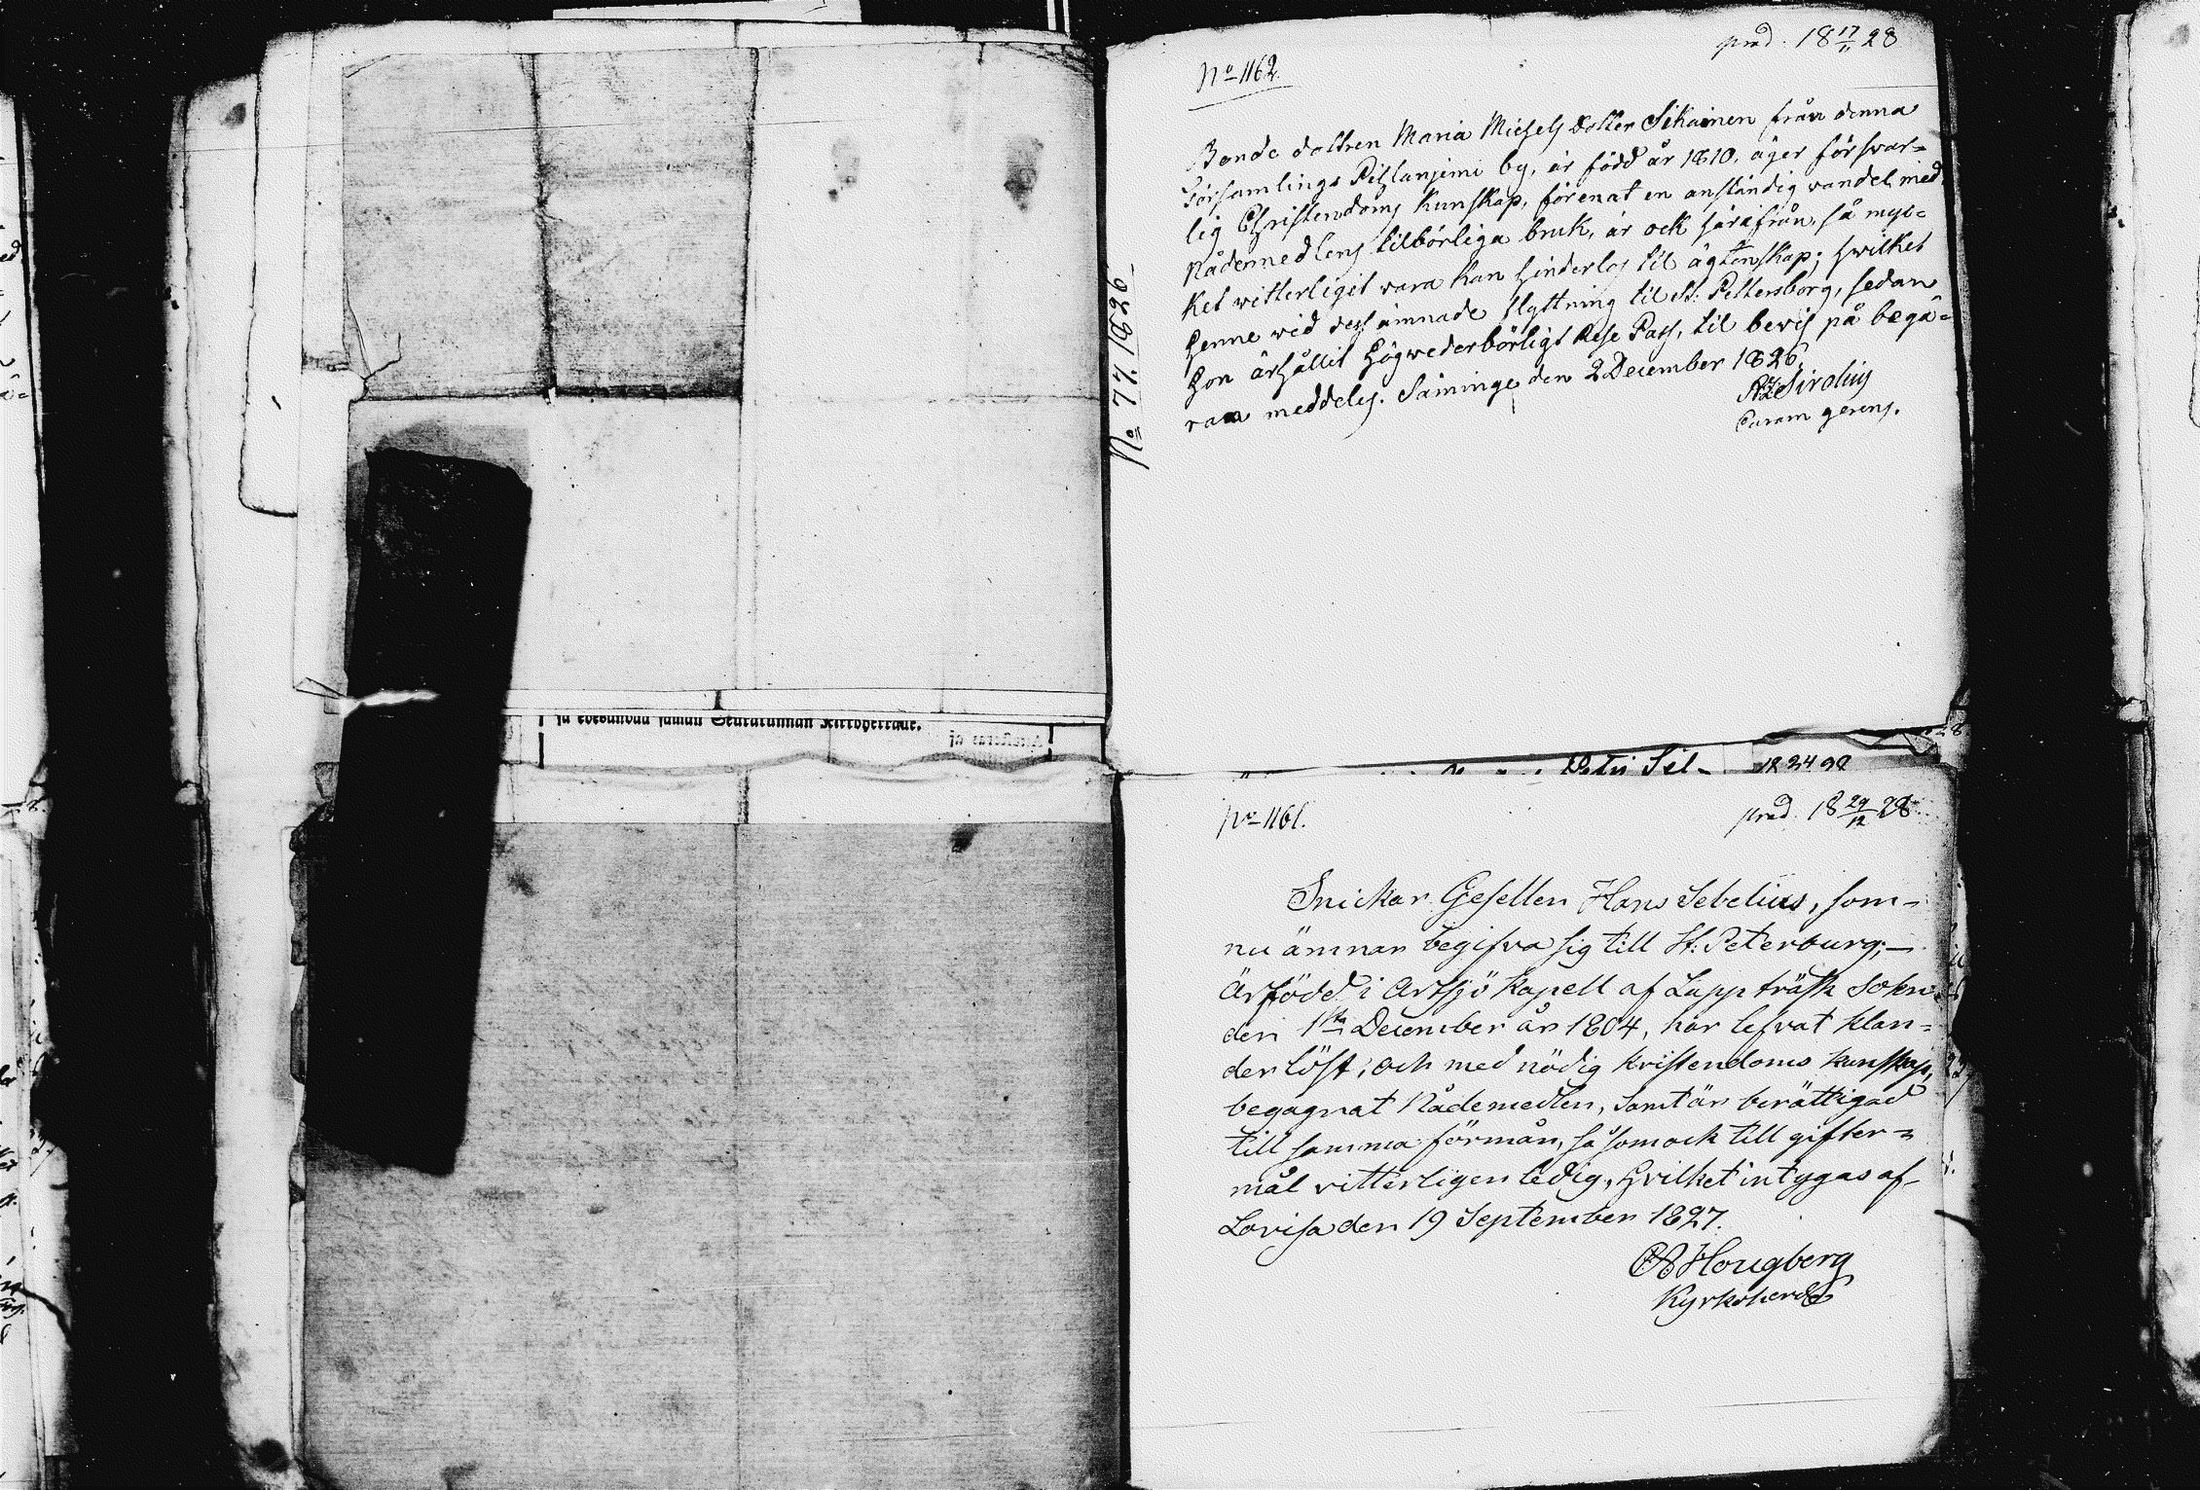 prod. 18 17/11 28
No 1162.
Bonde dottren Maria Michels dotter Sikainen från denna
Församlings Pihlanjemi by, är född år 1810, äger försvar=
lig Christendoms kunskap, förenat en anständig vandel med
Nådemedlens tilbörliga bruk, är ock härifrån, så myc=
ket witterligit vara kan hinderlös til ägtenskap; hwilket
Henne wid dess ämnade flyttning til St. Pettersborg, sedan
Hon ärhållit Högwederbörligt Rese Pass, til bevis på begä=
ran meddeles. Säminge den 2 December 1826.
Sirelius
Curam gerens.
No 77. 1826
sa edesandaa saman Seurakunnan Kirkkoherralle.
Petri Sil-
No 1161.
prod. 18 29/12 28
Snickar Gesellen Hans Sebelius, som-
nu ämnar begifva sig till St: Peterburg;-
är född i Artsjö kapell af Lappträsk Sokn
den 1sta December år 1804, har lefvat klan=
derlöst, och med nödig kristendoms kunskap,
begagnat Nådemedlen, samt är berättigad
till samma förmån, så som ock till gifter=
mål vitterligen ledig, hvilket intygas af-
Lovisa den 19 September 1827.
Hougberg
Kyrkoherde